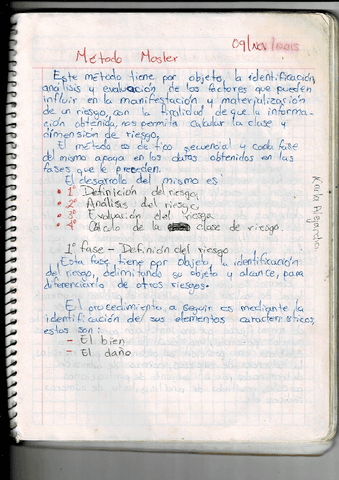 09/Nov/2015
Método Mosler
Este método tiene por objeto, la identificación,
analisis y evaluación de los factores que pueden
influir en la manifestación y materialización
de un riesgo, con la finalidad de que la informa-
ción obtenida, nos permita calcular la clase y
dimensión de riesgo.
El método es de tipo secuencial y cada fase
del mismo apoya en los datos obtenidos en las
fases que le preceden.
El desarrollo del mismo es:
1° Definición del riesgo,
2° Análisis del riesgo,
3° Evaluación del riesgo
4° Cálculo de la clase de riesgo.
1° fase - Definición del riesgo
Esta fase, tiene por objeto, la identificación
del riesgo, delimitando su objeto y alcance, para
diferenciarlo de otros riesgos.
El procedimiento a seguir es mediante la
identificación de sus elementos característicos,
estos son:
- El bien
- El daño
Karla